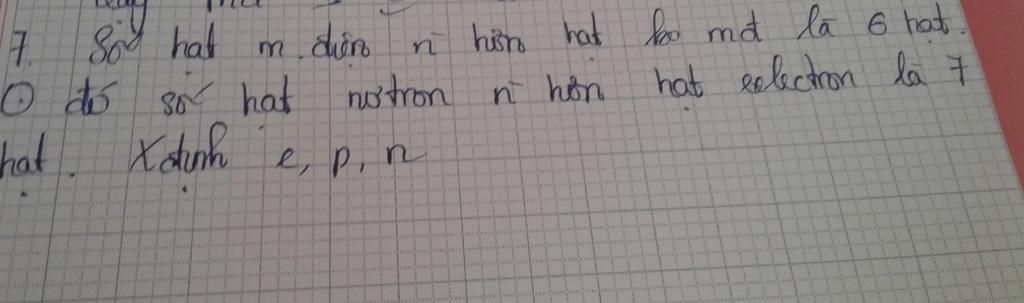 7. Số hạt m.điện n hơn hạt ko mđ là 6 hạt.
đó số hạt nơtron n hơn hạt eelectron là 7
hạt. Xđịnh e, p, n